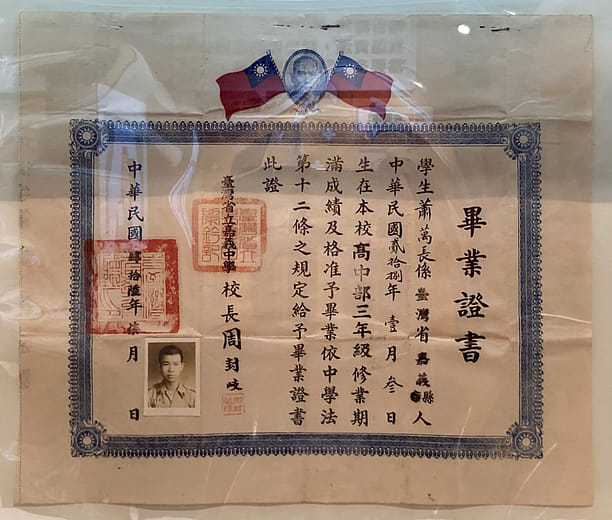 畢業證書
學生蕭萬長係臺灣省嘉義縣人
中華民國貳拾捌年壹月叁日
生在本校高中部三年級修業期
滿成績及格准予畢業依中學法
第十二條之規定給予畢業證書
此證
臺灣省立嘉義中學校長周封岐
中華民國肆拾陸年柒月 日